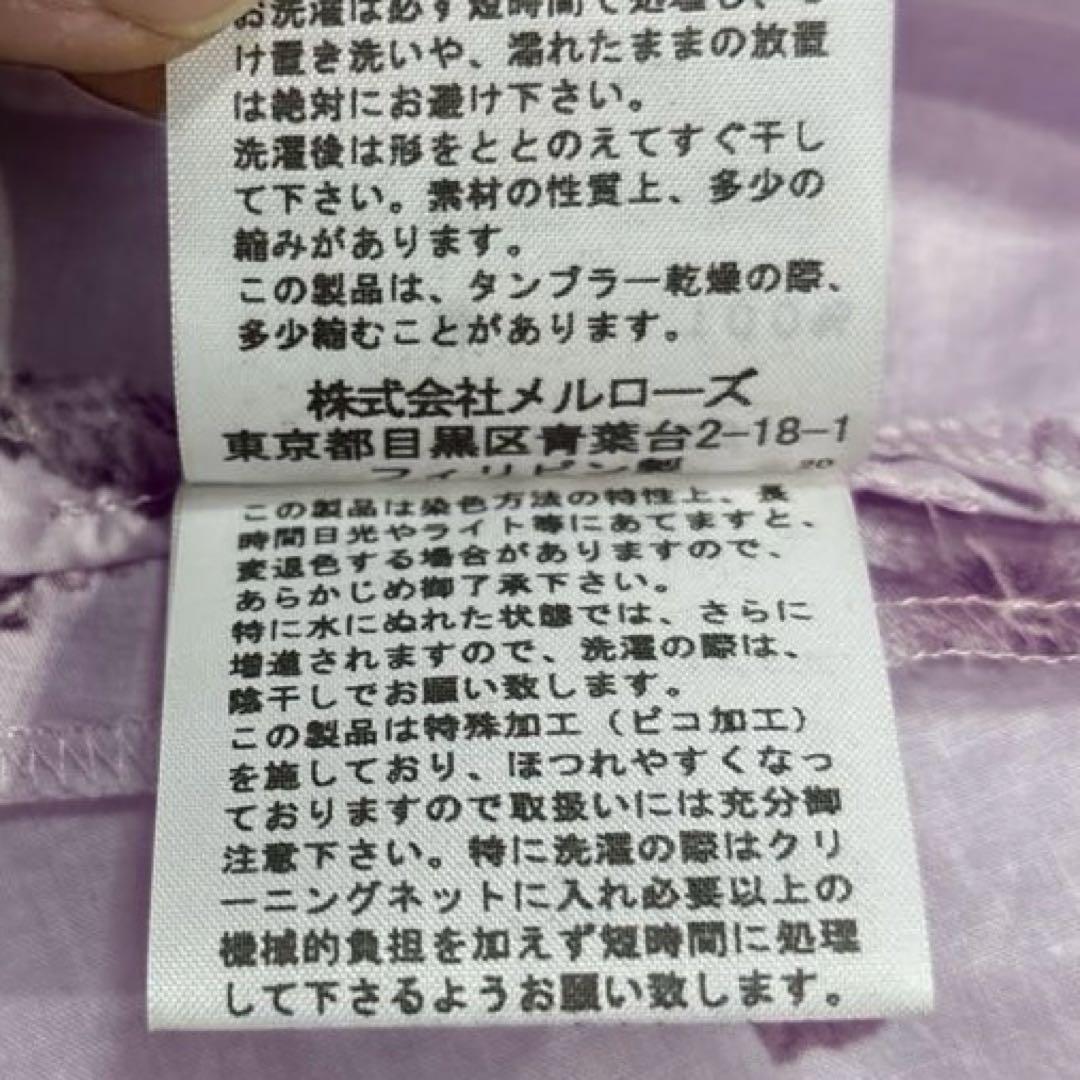 お洗濯は必ず短時間で処理し、つ
け置き洗いや、濡れたままの放置
は絶対にお避け下さい。
洗濯後は形をととのえてすぐ干し
て下さい。素材の性質上、多少の
縮みがあります。
この製品は、タンブラー乾燥の際、
多少縮むことがあります。
株式会社メルローズ
東京都目黒区青葉台2-18-1
フィリピン製 20
この製品は染色方法の特性上、長
時間日光やライト等にあてますと、
変退色する場合がありますので、
あらかじめ御了承下さい。
特に水にぬれた状態では、さらに
増進されますので、洗濯の際は、
陰干しでお願い致します。
この製品は特殊加工（ピコ加工）
を施しており、ほつれやすくなっ
ておりますので取扱いには充分御
注意下さい。特に洗濯の際はクリ
ーニングネットに入れ必要以上の
機械的負担を加えず短時間に処理
して下さるようお願い致します。